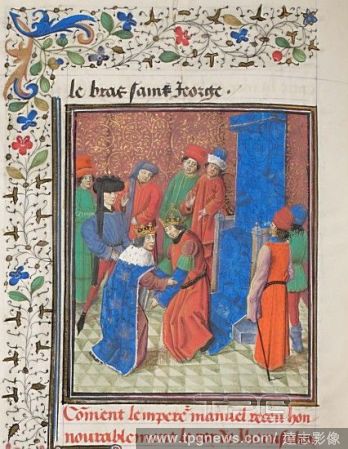 le bras saint George .
Cōment lempere⁹ manuel receu hon
nourablement
www.tpgnews.com/達志影像